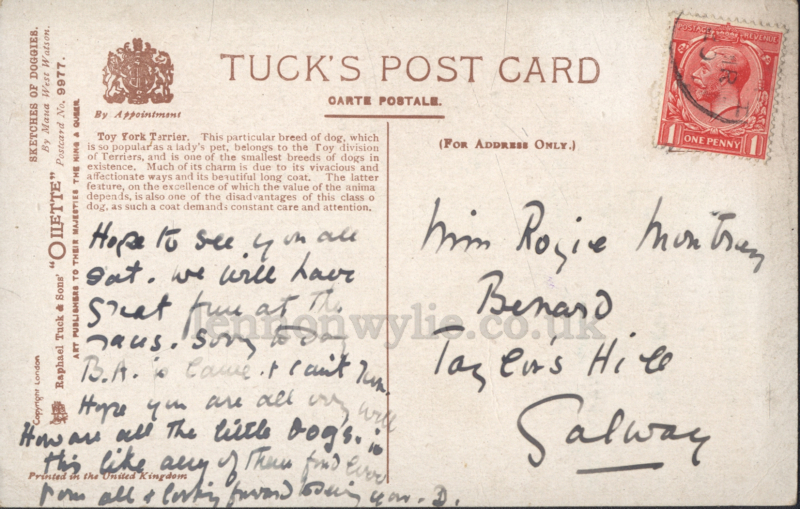 SKETCHES OF DOGGIES.
By Maud West Watson.
Postcard No. 9977.
Raphael Tuck & Sons' "OILETTE"
ART PUBLISHERS TO THEIR MAJESTIES THE KING & QUEEN.
Copyright London
By Appointment
TUCK'S POST CARD
CARTE POSTALE.
(FOR ADDRESS ONLY.)
POSTAGE REVENUE
1 ONE PENNY 1
Toy York Terrier. This particular breed of dog, which
is so popular as a lady's pet, belongs to the Toy division
of Terriers, and is one of the smallest breeds of dogs in
existence. Much of its charm is due to its vivacious and
affectionate ways and its beautiful long coat. The latter
feature, on the excellence of which the value of the anima
depends, is also one of the disadvantages of this class o
dog, as such a coat demands constant care and attention.
Hope to see you all
Sat. we will have
great fun at the
races. Sorry to say
B.A. is lame & can't run.
Hope you are all very well
How are all the little Dogs. is
this like any of them fond love
from all & looking forward to seeing you. D.
Printed in the United Kingdom
Miss Rozie
Benard
Taylor's Hill
Galway
lennonwylie.co.uk